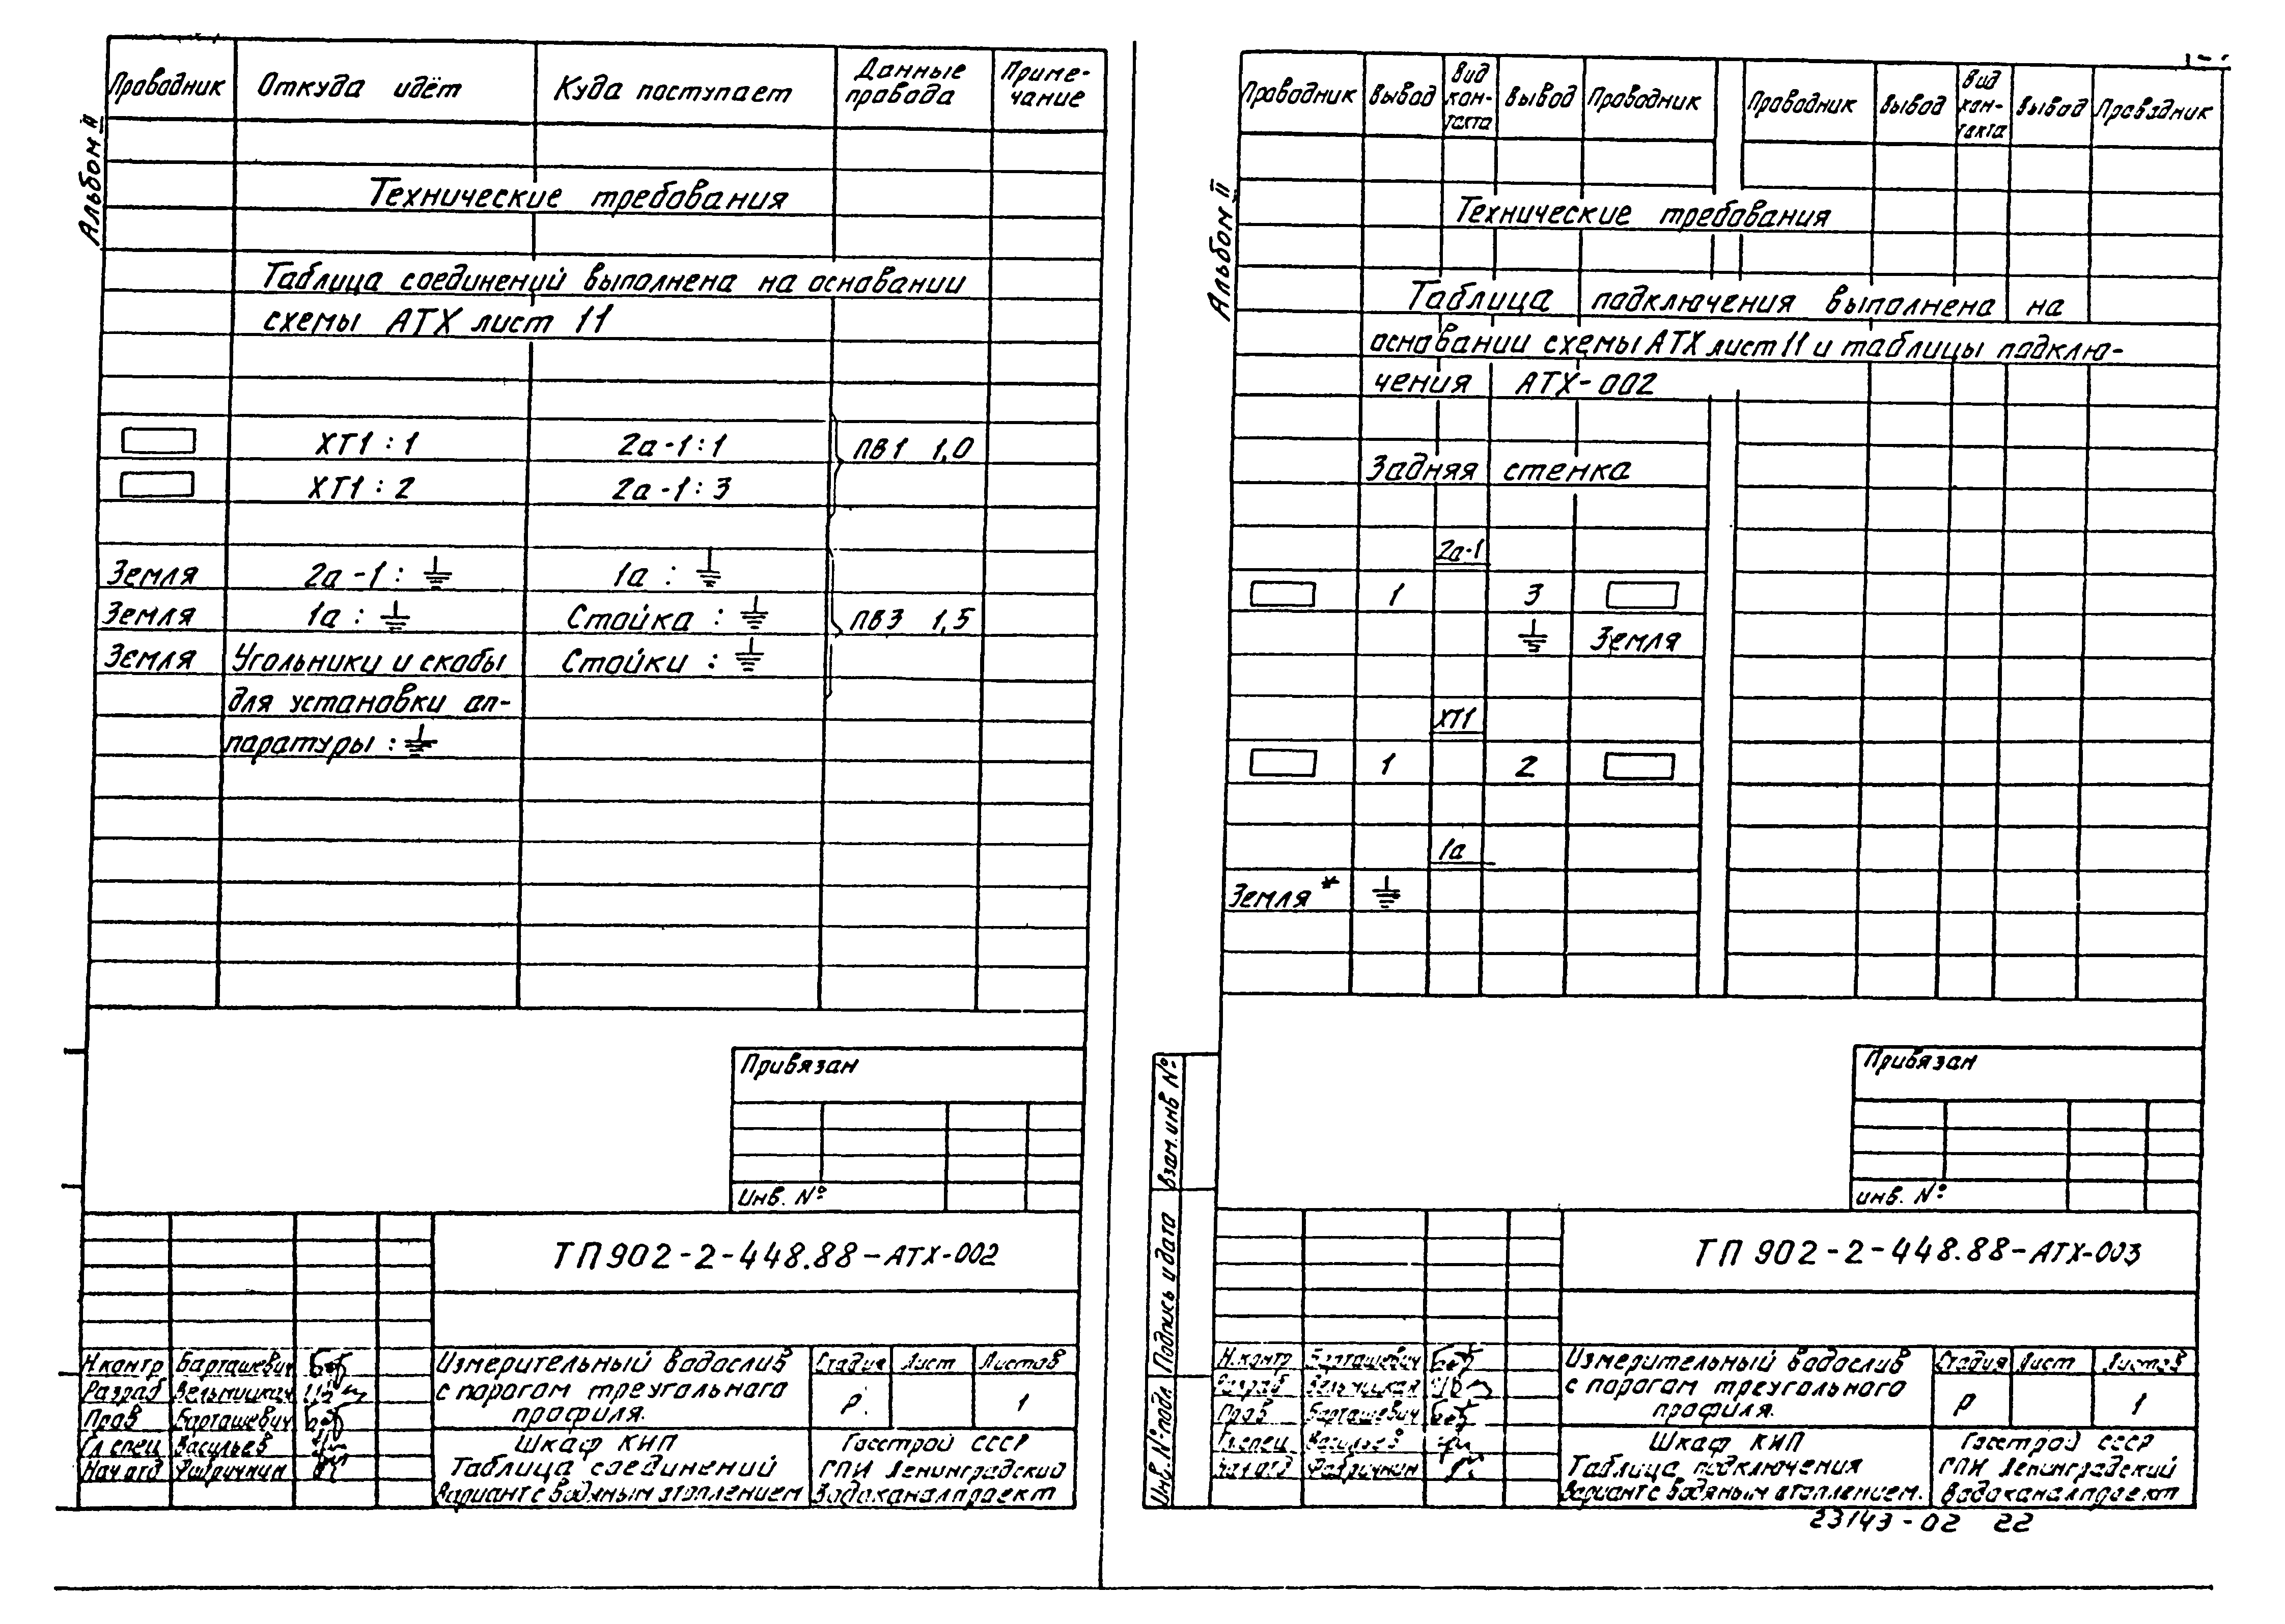 Альбом II
Проводник Откуда идёт Куда поступает Данные провода Приме-чание
Технические требования
Таблица соединений выполнена на основании
схемы АТХ лист 11
ХТ1 : 1 2а-1 : 1 ПВ1 1,0
ХТ1 : 2 2а-1 : 3
Земля 2а-1 : ⏚ 1а : ⏚
Земля 1а : ⏚ Стойка : ⏚ ПВ3 1,5
Земля Угольники и скобы Стойки : ⏚
для установки ап-
паратуры : ⏚
Привязан
Инв. №
ТП 902-2-448.88-АТХ-002
Н.контр Барташевич
Разраб Вельницкая
Пров Барташевич
Гл.спец Васильев
Нач отд Фабричнин
Измерительный водослив
с порогом треугольного
профиля.
Стадия Лист Листов
Р. 1
Шкаф КИП
Таблица соединений
Вариант с водяным отоплением
Госстрой СССР
ГПИ Ленинградский
Водоканалпроект
Альбом II
Проводник Вывод Вид кон-такта Вывод Проводник Проводник Вывод Вид кон-такта Вывод Проводник
Технические требования
Таблица подключения выполнена на
основании схемы АТХ лист 11 и таблицы подклю-
чения АТХ-002
Задняя стенка
2а-1
1 3
⏚ Земля
ХТ1
1 2
1а
Земля* ⏚
Привязан
инв. №
Взам.инв №
Подпись и дата
Инв.№ подл
ТП 902-2-448.88-АТХ-003
Н.контр Барташевич
Разраб Вельницкая
Пров Барташевич
Гл.спец Васильев
Нач отд Фабричнин
Измерительный водослив
с порогом треугольного
профиля.
Стадия Лист Листов
Р 1
Шкаф КИП
Таблица подключения
Вариант с водяным отоплением.
Госстрой СССР
ГПИ Ленинградский
Водоканалпроект
23143-02 22